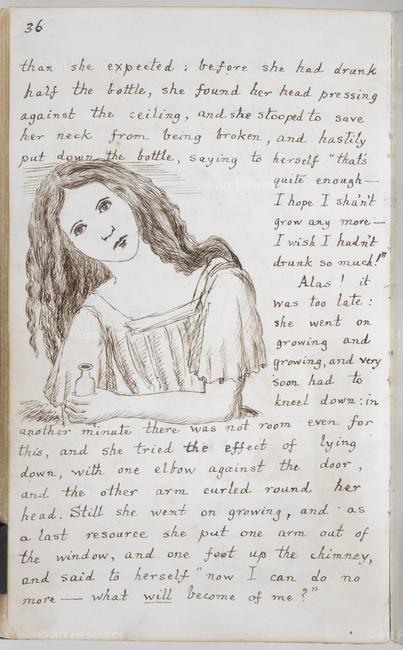 36
than she expected : before she had drunk
half the bottle, she found her head pressing
against the ceiling, and she stooped to save
her neck from being broken, and hastily
put down the bottle, saying to herself "that's
quite enough—
I hope I sha'n't
grow any more—
I wish I hadn't
drunk so much!"
Alas! it
was too late :
she went on
growing and
growing, and very
soon had to
kneel down : in
another minute there was not room even for
this, and she tried the effect of lying
down, with one elbow against the door,
and the other arm curled round her
head. Still she went on growing, and as
a last resource she put one arm out of
the window, and one foot up the chimney,
and said to herself "now I can do no
more — what will become of me?"
© Art Resource
Art Resource